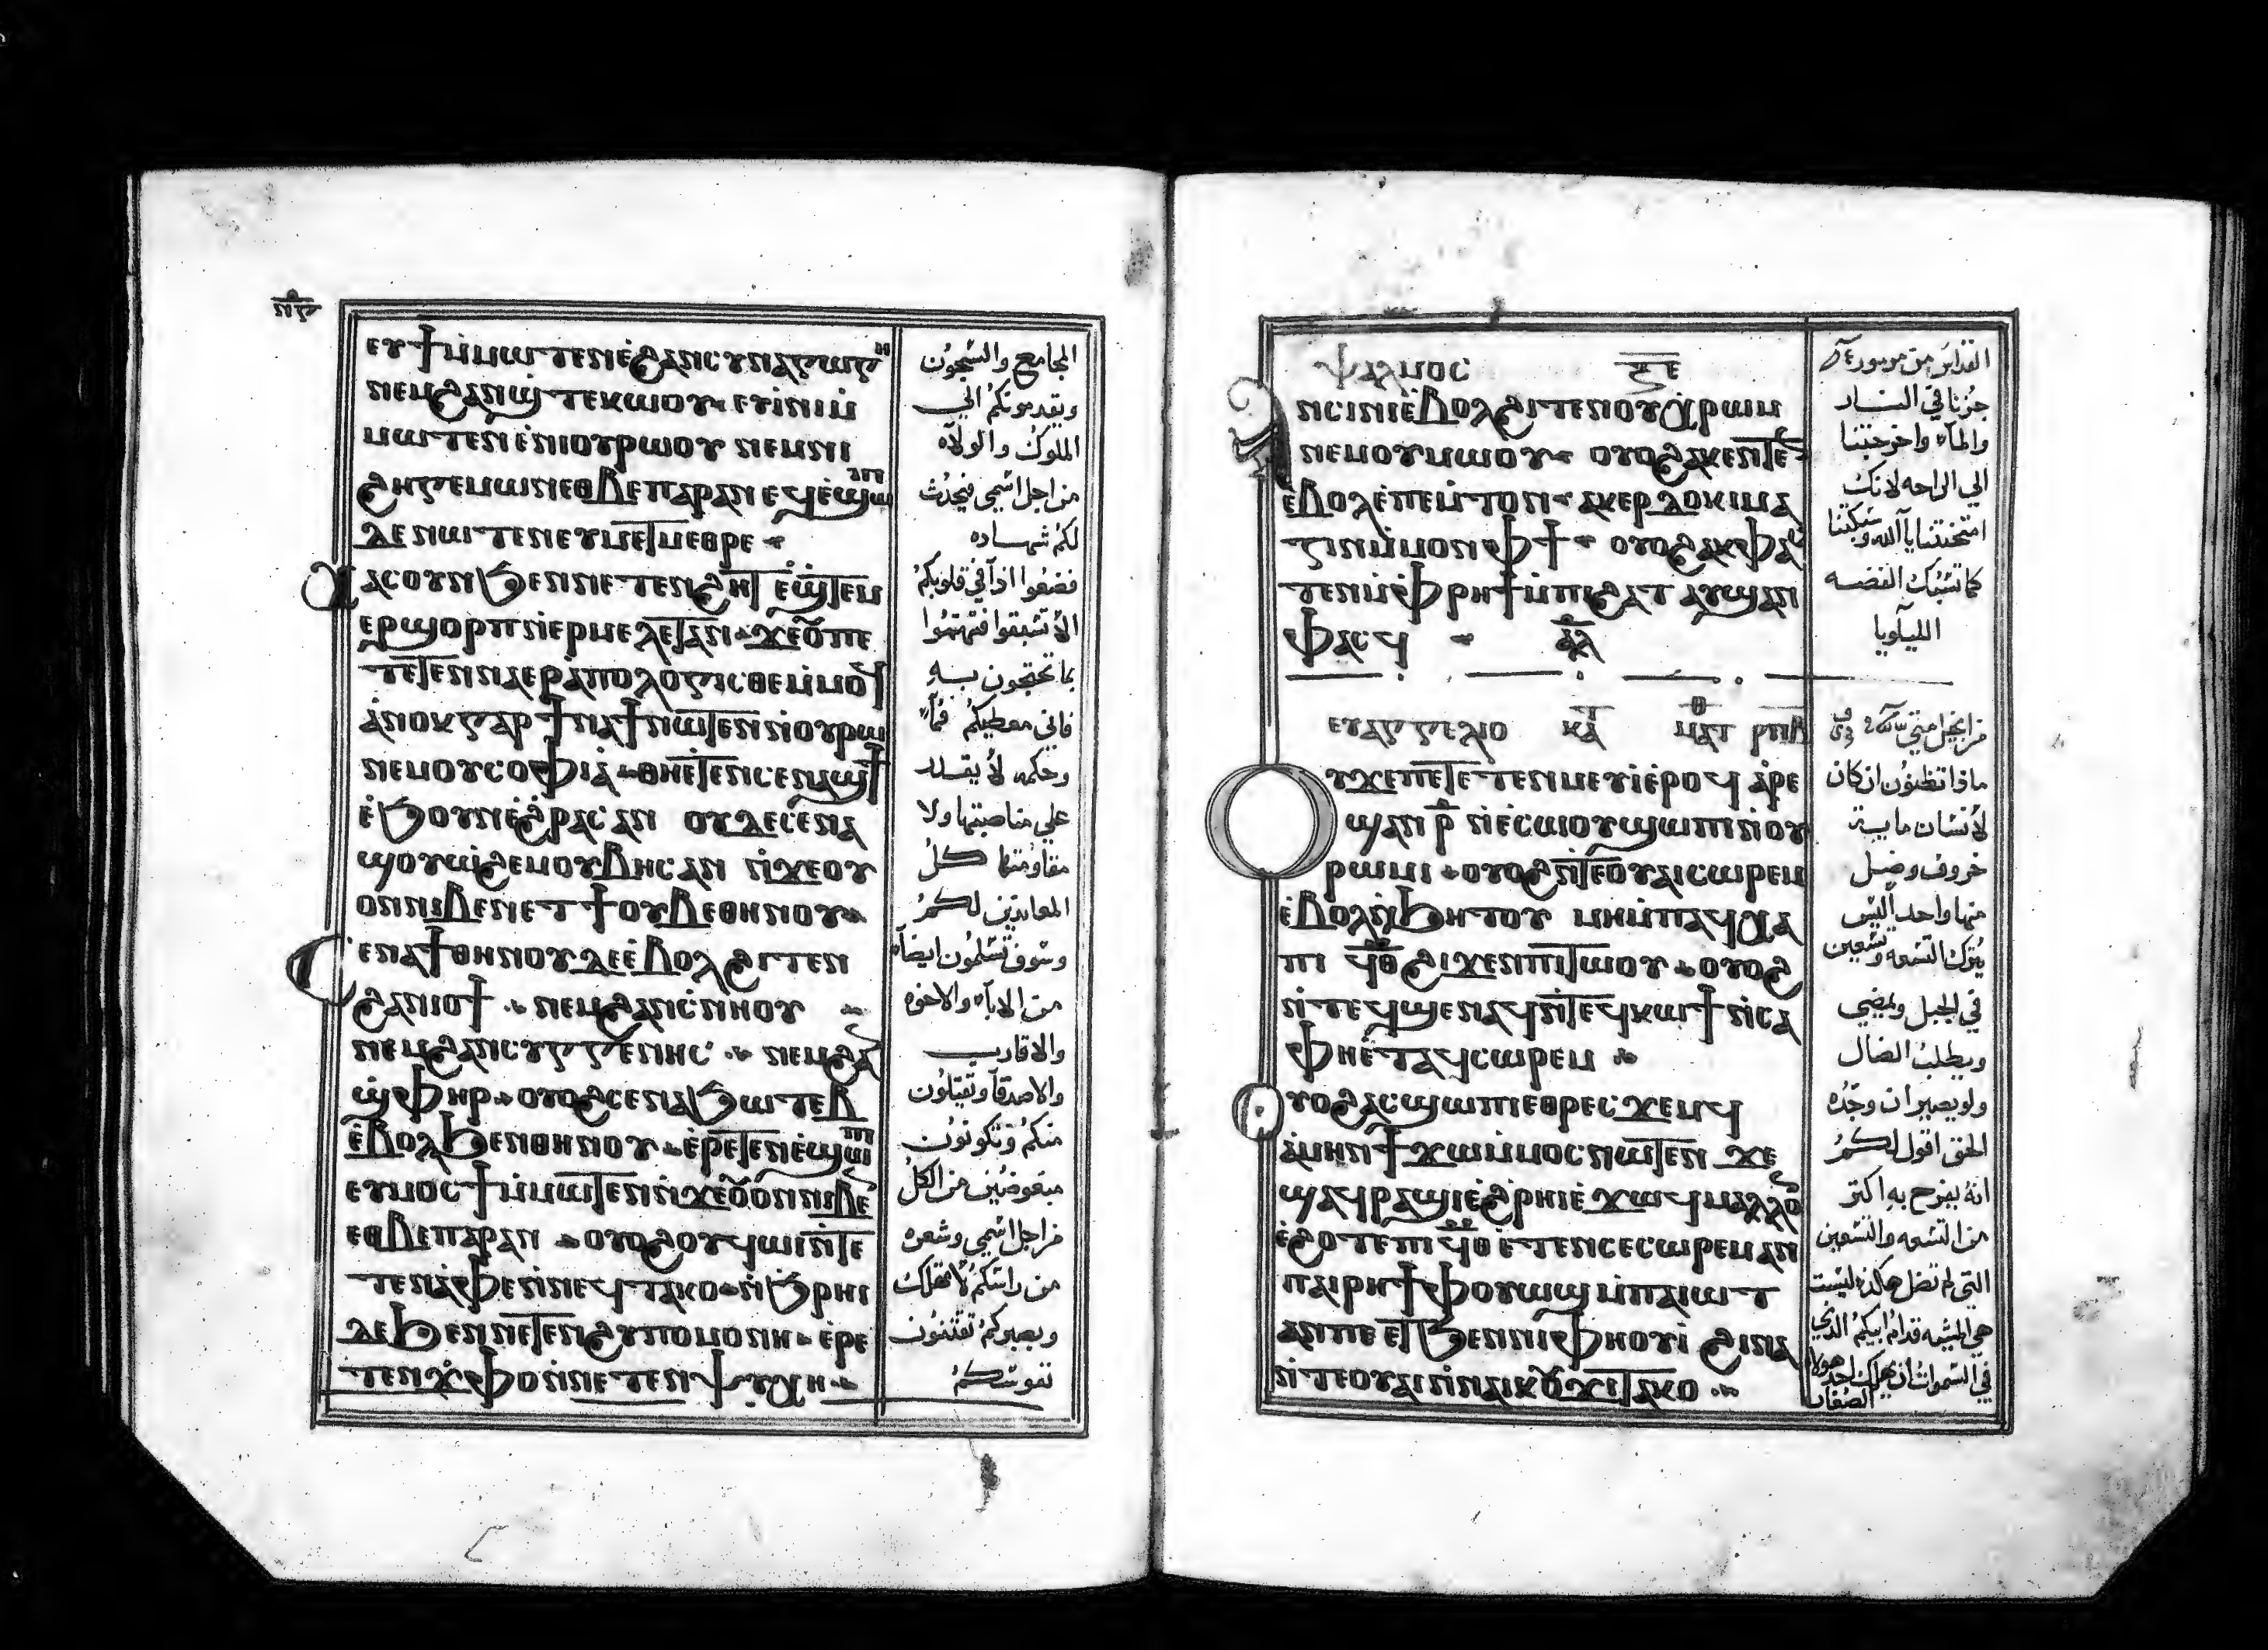 ⲉⲩϯⲙⲙⲱⲧⲉⲛⲉϩⲁⲛⲥⲩⲛⲁⲅⲱⲅⲏ
ⲛⲉⲙϩⲁⲛϣⲧⲉⲕⲱⲟⲩ ⲉⲩⲓⲛⲓⲙ
ⲙⲱⲧⲉⲛ ⲉⲛⲓⲟⲩⲣⲱⲟⲩ ⲛⲉⲙⲛⲓ
ϩⲏⲅⲉⲙⲱⲛⲉⲑⲃⲉⲡⲁⲣⲁⲛ ⲉϥⲉϣⲱⲡⲓ
ⲇⲉ ⲛⲱⲧⲉⲛⲉⲩⲙⲉⲧⲙⲉⲑⲣⲉ
ⲭⲁⲥⲟⲩⲛ ϧⲉⲛⲛⲉⲧⲉⲛϩⲏⲧ ⲉϣⲧⲉⲙ
ⲉⲣϣⲟⲣⲡ ⲛⲉⲣⲙⲉⲗⲉⲧⲁⲛ ϫⲉⲟⲩⲡⲉ
ⲧⲉⲧⲉⲛⲛⲁⲉⲣⲁⲡⲟⲗⲟⲅⲓⲥⲑⲉⲙⲙⲟϥ
ⲁⲛⲟⲕⲅⲁⲣ ϯⲛⲁϯⲛⲱⲧⲉⲛⲛⲟⲩⲣⲱ
ⲛⲉⲙⲟⲩⲥⲟⲫⲓⲁ ⲑⲏⲉⲧⲉⲛⲥⲉⲛⲁϣϯ
ⲉϧⲟⲩⲛⲉϩⲣⲁⲥⲁⲛ ⲟⲩⲇⲉⲥⲉⲛⲁ
ϣⲟⲩⲱϩⲉⲙⲟⲩⲃⲏⲥⲁⲛ ⲛϫⲉⲟⲩ
ⲟⲛⲛⲓⲃⲉⲛⲉⲧ ϯⲟⲩⲃⲉⲑⲏⲛⲟⲩ
ⲥⲉⲛⲁϯⲑⲏⲛⲟⲩⲇⲉⲉⲃⲟⲗϩⲓⲧⲉⲛ
ϩⲁⲛⲓⲟϯ ⲛⲉⲙϩⲁⲛⲥⲛⲏⲟⲩ
ⲛⲉⲙϩⲁⲛⲥⲩⲅⲅⲉⲛⲏⲥ ⲛⲉⲙϩⲁⲛ
ϣⲫⲏⲣ ⲟⲩⲟϩⲥⲉⲛⲁϧⲱⲧⲉⲃ
ⲉⲃⲟⲗϧⲉⲛⲑⲏⲛⲟⲩ ⲉⲣⲉⲧⲉⲛⲉϣⲱⲡⲓ
ⲉⲩⲙⲟⲥϯⲙⲙⲱⲧⲉⲛⲛϫⲉⲟⲩⲟⲛⲛⲓⲃⲉⲛ
ⲉⲑⲃⲉⲡⲁⲣⲁⲛ ⲟⲩⲟϩⲟⲩϥⲱⲓⲛⲧⲉ
ⲧⲉⲛⲁⲫⲉⲛⲛⲉϥⲧⲁⲕⲟ ⲛϧⲣⲏⲓ
ⲇⲉϧⲉⲛⲛⲉⲧⲉⲛϩⲩⲡⲟⲙⲟⲛⲏ ⲉⲣⲉ
ⲧⲉⲛϫⲫⲟⲛⲛⲉⲧⲉⲛⲯⲩⲭⲏ
المجامع والسجون
ويقدمونكم الي
الملوك والولاه
من اجل اسمي فيحدث
لكم شهاده
فضعوا اذا في قلوبكم
الا تسبقوا فتهتموا
بما تحتجون به
فاني معطيكم فماً
وحكمه لا يقدر
علي مناصبتها ولا
مقاومتها كل
المعاندين لكم
وسوف تسلمون ايضاً
من الاباء والاخوه
والاقارب
والاصدقا وتقتلون
منكم وتكونون
مبغوضين من الكل
من اجل اسمي وشعره
من راسكم لا تهلك
وبصبركم تقتنون
نفوسكم
ⲯⲁⲗⲙⲟⲥ ⲝⲉ
ⲁⲛⲥⲓⲛⲓⲉⲃⲟⲗϩⲓⲧⲉⲛⲟⲩⲭⲣⲱⲙ
ⲛⲉⲙⲟⲩⲙⲱⲟⲩ ⲟⲩⲟϩⲁⲕⲉⲛⲧⲉⲛ
ⲉⲃⲟⲗⲉⲡⲉⲙⲧⲟⲛ ⲁⲕⲉⲣⲇⲟⲕⲓⲙⲁ
ⲍⲓⲛⲙⲙⲟⲛⲫϯ ⲟⲩⲟϩⲁⲕⲫⲁⲥ
ⲧⲉⲛⲙⲫⲣⲏϯⲙⲡⲓϩⲁⲧ ⲁⲩϣⲁⲛ
ⲫⲁⲥϥ ⲁⲗ
ⲉⲩⲁⲅⲅⲉⲗⲓⲟ ⲕⲁ ⲙⲁⲧ ⲣⲡⲃ
ⲟⲩϫⲉⲡⲉⲧⲉⲧⲉⲛⲙⲉⲩⲓⲉⲣⲟϥ ⲁⲣⲉ
ϣⲁⲛ ⲣ ⲛⲉⲥⲱⲟⲩϣⲱⲡⲓⲛⲟⲩ
ⲣⲱⲙⲓ ⲟⲩⲟϩⲛⲧⲉⲟⲩⲁⲓⲥⲱⲣⲉⲙ
ⲉⲃⲟⲗⲛϧⲏⲧⲟⲩ ⲙⲏⲙⲡⲁϥⲭⲁ
ⲡⲓ ϥⲑ ϩⲓϫⲉⲛⲡⲓⲧⲱⲟⲩ ⲟⲩⲟϩ
ⲛⲧⲉϥϣⲉⲛⲁϥⲛⲧⲉϥⲕⲱϯⲛⲥⲁ
ⲫⲏⲉⲧⲁϥⲥⲱⲣⲉⲙ
ⲟⲩⲟϩⲁⲥϣⲱⲡⲓⲉⲑⲣⲉϥϫⲉⲙϥ
ⲁⲙⲏⲛϯϫⲱⲙⲙⲟⲥⲛⲱⲧⲉⲛ ϫⲉ
ϣⲁϥⲣⲁϣⲓⲉϩⲣⲏⲓⲉϫⲱϥⲙⲁⲗⲗⲟⲛ
ⲉϩⲟⲧⲉⲡⲓ ϥⲑ ⲉⲧⲉⲛⲥⲉⲥⲱⲣⲉⲙⲁⲛ
ⲡⲁⲓⲣⲏϯⲫⲟⲩⲱϣⲙⲡⲁⲓⲱⲧ
ⲁⲛⲡⲉ ⲉⲧϧⲉⲛⲛⲓⲫⲏⲟⲩⲓ ϩⲓⲛⲁ
ⲛⲧⲉⲟⲩⲁⲓⲛⲛⲁⲓⲕⲟⲩϫⲓⲧⲁⲕⲟ
جزنا في النار
والماء واخرجتنا
الي الراحه لانك
امتحنتنا يا الله وسبكتنا
كما تسبك الفضه
الليلويا
ماذا تظنون ان كان
لانسان مايه
خروف وضل
منها واحد اليس
يترك التسعه وتسعين
في الجبل ويمضي
ويطلب الضال
ولو يصير ان وجده
الحق اقول لكم
انه يفرح به اكثر
من التسعه والتسعين
التي لم تضل هكذا ليست
هي المشيه قدام ابيكم الذي
في السموات ان يهلك احد هولاء
الصغار